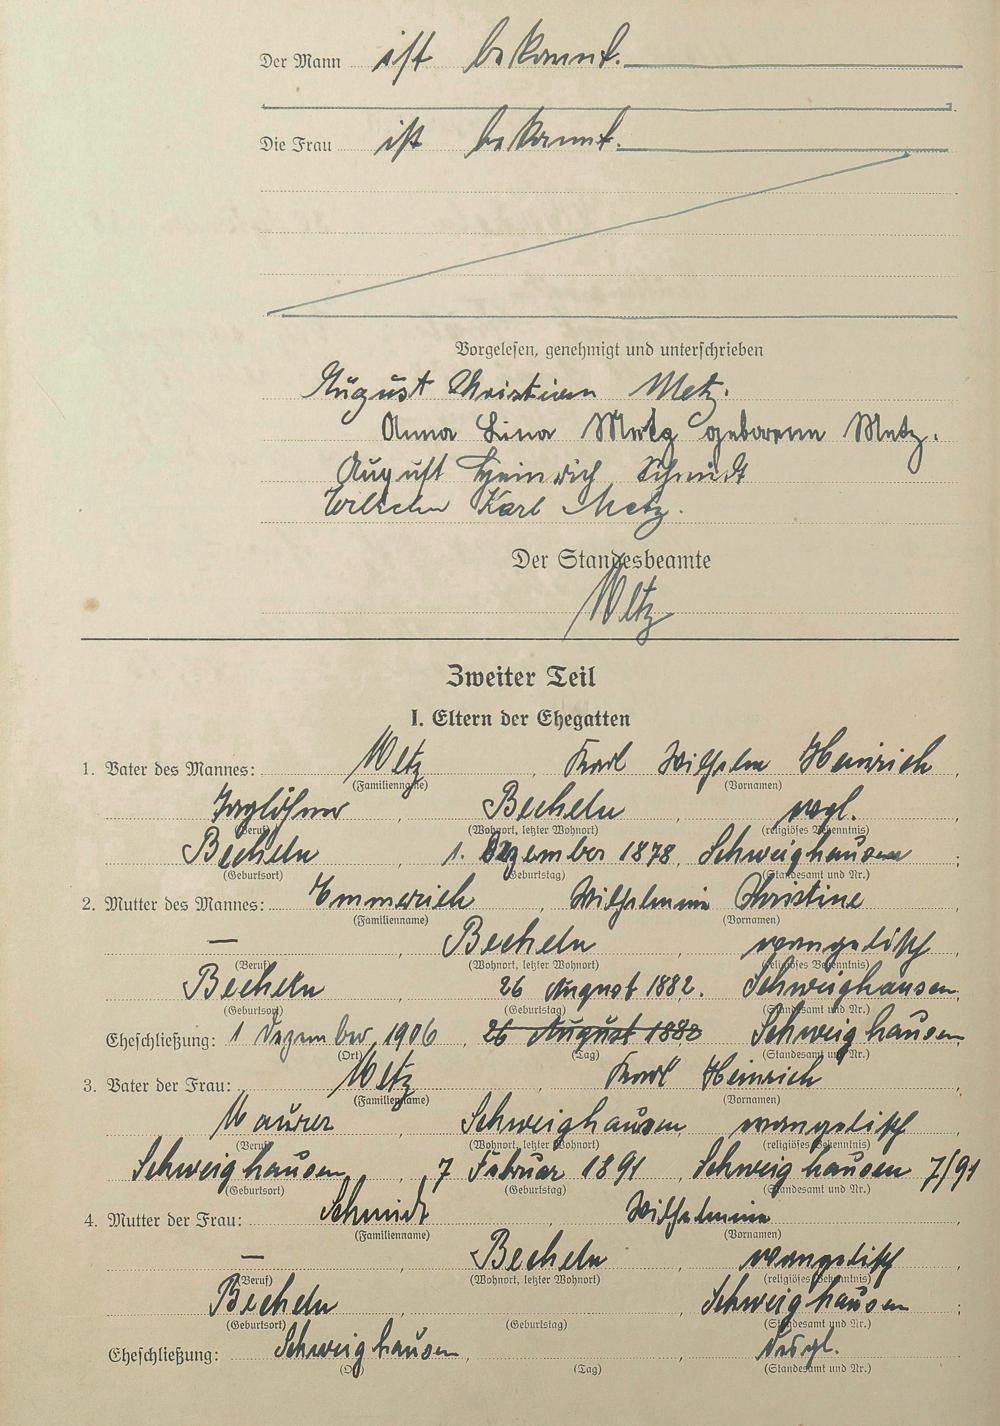 Der Mann ist bekannt.
Die Frau ist bekannt.
Vorgelesen, genehmigt und unterschrieben
August Christian Metz.
Anna Lina Metz geborene Metz.
August Heinrich Schmidt
Wilhelm Karl Metz.
Der Standesbeamte
Metz
Zweiter Teil
I. Eltern der Ehegatten
1. Vater des Mannes: Metz, Karl Wilhelm Heinrich,
(Familienname) (Vornamen)
Taglöhner, Becheln, evgl.
(Beruf) (Wohnort, letzter Wohnort) (religiöses Bekenntnis)
Becheln, 1. Dezember 1878, Schweighausen;
(Geburtsort) (Geburtstag) (Standesamt und Nr.)
2. Mutter des Mannes: Emmerich, Wilhelmine Christine,
(Familienname) (Vornamen)
—, Becheln, evangelisch,
(Beruf) (Wohnort, letzter Wohnort) (religiöses Bekenntnis)
Becheln, 26 August 1882. Schweighausen.
(Geburtsort) (Geburtstag) (Standesamt und Nr.)
Eheschließung: 1 Dezember 1906, 26 August 1882 Schweighausen
(Ort) (Tag) (Standesamt und Nr.)
3. Vater der Frau: Metz, Karl Heinrich,
(Familienname) (Vornamen)
Maurer, Schweighausen, evangelisch,
(Beruf) (Wohnort, letzter Wohnort) (religiöses Bekenntnis)
Schweighausen, 7 Februar 1891, Schweighausen 7/91
(Geburtsort) (Geburtstag) (Standesamt und Nr.)
4. Mutter der Frau: Schmidt, Wilhelmine,
(Familienname) (Vornamen)
—, Becheln, evangelisch,
(Beruf) (Wohnort, letzter Wohnort) (religiöses Bekenntnis)
Becheln, , Schweighausen;
(Geburtsort) (Geburtstag) (Standesamt und Nr.)
Eheschließung: Schweighausen, ,
(Ort) (Tag) (Standesamt und Nr.)